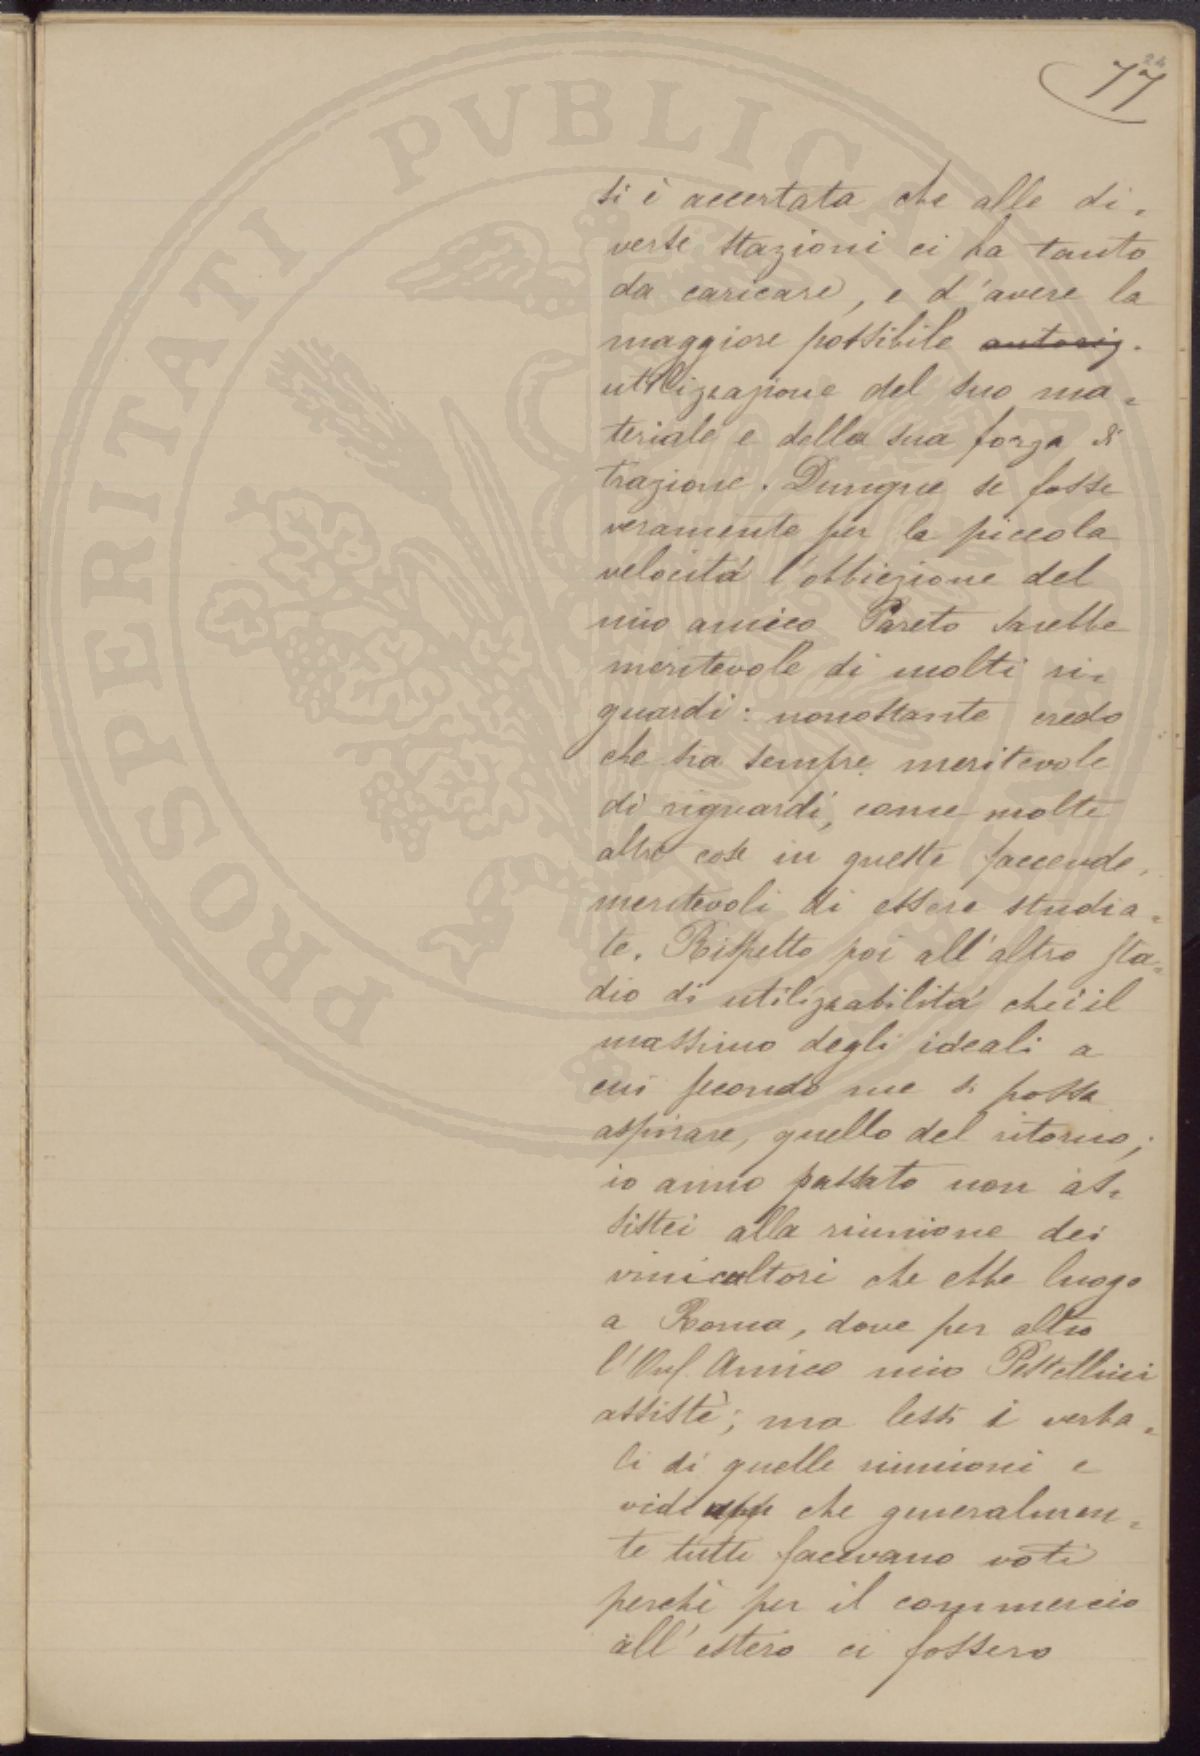 24
77
si è accertata che alle di=
verse stazioni ci ha tanto
da caricare, e d'avere la
maggiore possibile autoriz.
utilizzazione del suo ma=
teriale e della sua forza di
trazione. Dunque se fosse
veramente per la piccola
velocità l'obbiezione del
mio amico Pareto sarebbe
meritevole di molti ri=
guardi: nonostante credo
che sia sempre meritevole
di riguardi, come molte
altre cose in queste faccende,
meritevoli di essere studia=
te. Rispetto poi all'altro sta=
dio di utilizzabilità che è il
massimo degli ideali a
cui secondo me si possa
aspirare, quello del ritorno;
io anno passato non as=
sistei alla riunione dei
vinicultori che ebbe luogo
a Roma, dove per altro
l'Amico mio Pestellini
assistè; ma lessi i verba=
li di quelle riunioni e
vidi che generalmen=
te tutti facevano voti
perchè per il commercio
all'estero ci fossero
PROSPERITATI PVBLICAE